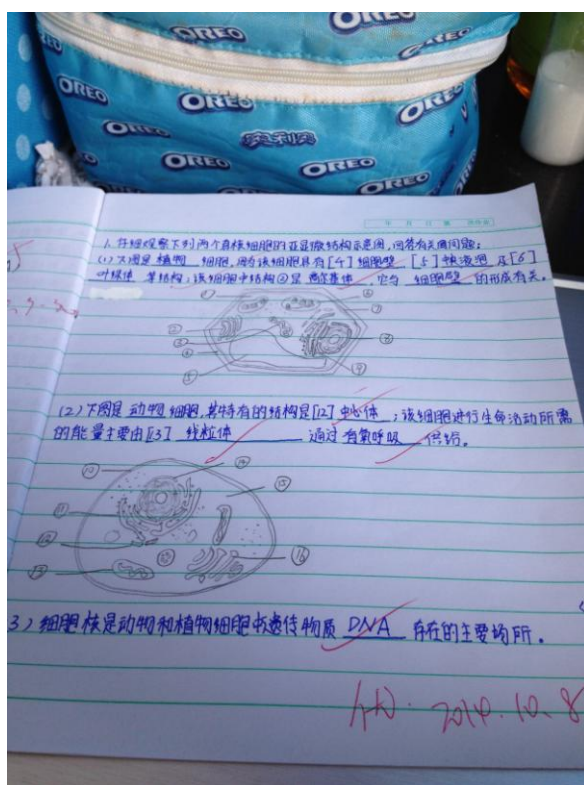 OREO
OREO
OREO
OREO
OREO
OREO
OREO
奥利奥
OREO
OREO
年 月 日
1. 仔细观察下列两个真核细胞的亚显微结构示意图,回答有关问题:
(1)上图是 植物 细胞,因为该细胞具有[4]细胞壁 [5]中液泡 及[6]
叶绿体 等结构;该细胞中结构②是 高尔基体 ,它与 细胞壁 的形成有关。
(2)下图是 动物 细胞,其特有的结构是[12]中心体 ;该细胞进行生命活动所需
的能量主要由[13] 线粒体 通过 有氧呼吸 供给。
⑩
⑭
⑮
⑪
⑫
⑬
⑯
3)细胞核是动物和植物细胞中遗传物质 DNA 存在的主要场所。
2014.10.8